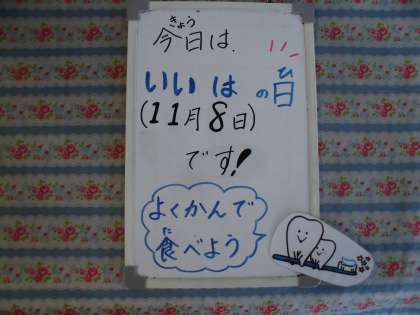 きょう
今日は、
いいはの日
ひ
(11月8日)
です!
よくかんで
た
食べよう